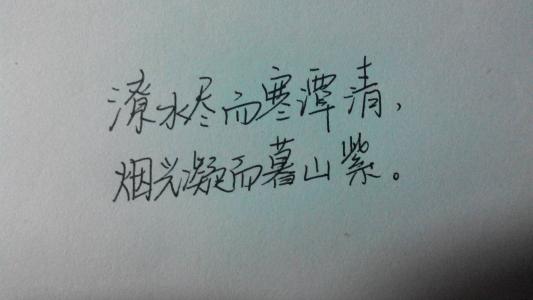 潦水尽而寒潭清,
烟光凝而暮山紫。